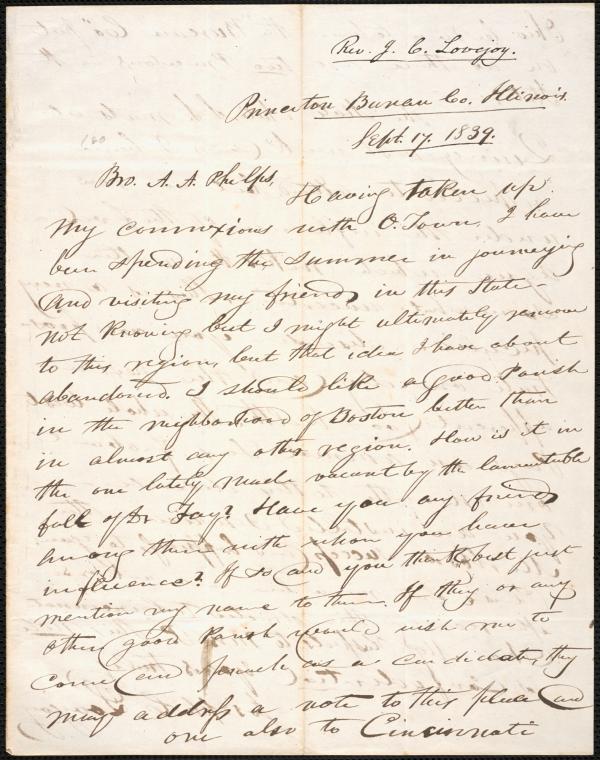 Rev. J. C. Lovejoy.
Princeton Bureau Co. Illinois.
Sept. 17. 1839.
Bro. A. A. Phelps,
Having taken up
my connexions with O. Town, I have
been spending the summer in journeying
and visiting my friends in this State -
not knowing but I might ultimately remove
to this region, but that idea I have about
abandoned. I should like a good Parish
in the neighborhood of Boston better than
in almost any other region. How is it in
the one lately made vacant by the lamentable
fall of Dr Fay? Have you any friends
among them with whom you have
influence? If so and you think best just
mention my name to them. If they or any
other good Parish would wish me to
come and preach as a candidate, they
may address a note to this place and
one also to Cincinnati